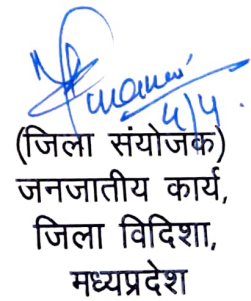 4/4
(जिला संयोजक)
जनजातीय कार्य,
जिला विदिशा,
मध्यप्रदेश